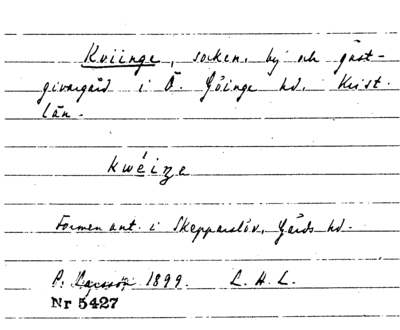 Kviinge, socken, by och gäst-
givargård i Ö. Göinge hd. Krist.
län.
kwéiŋe
Formen ant. i Skepparslöv, Gärds hd.
P. 1899. L. H. L.
Nr 5427